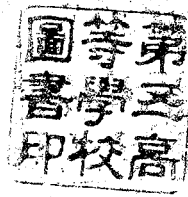 第五高
等學校
圖書印